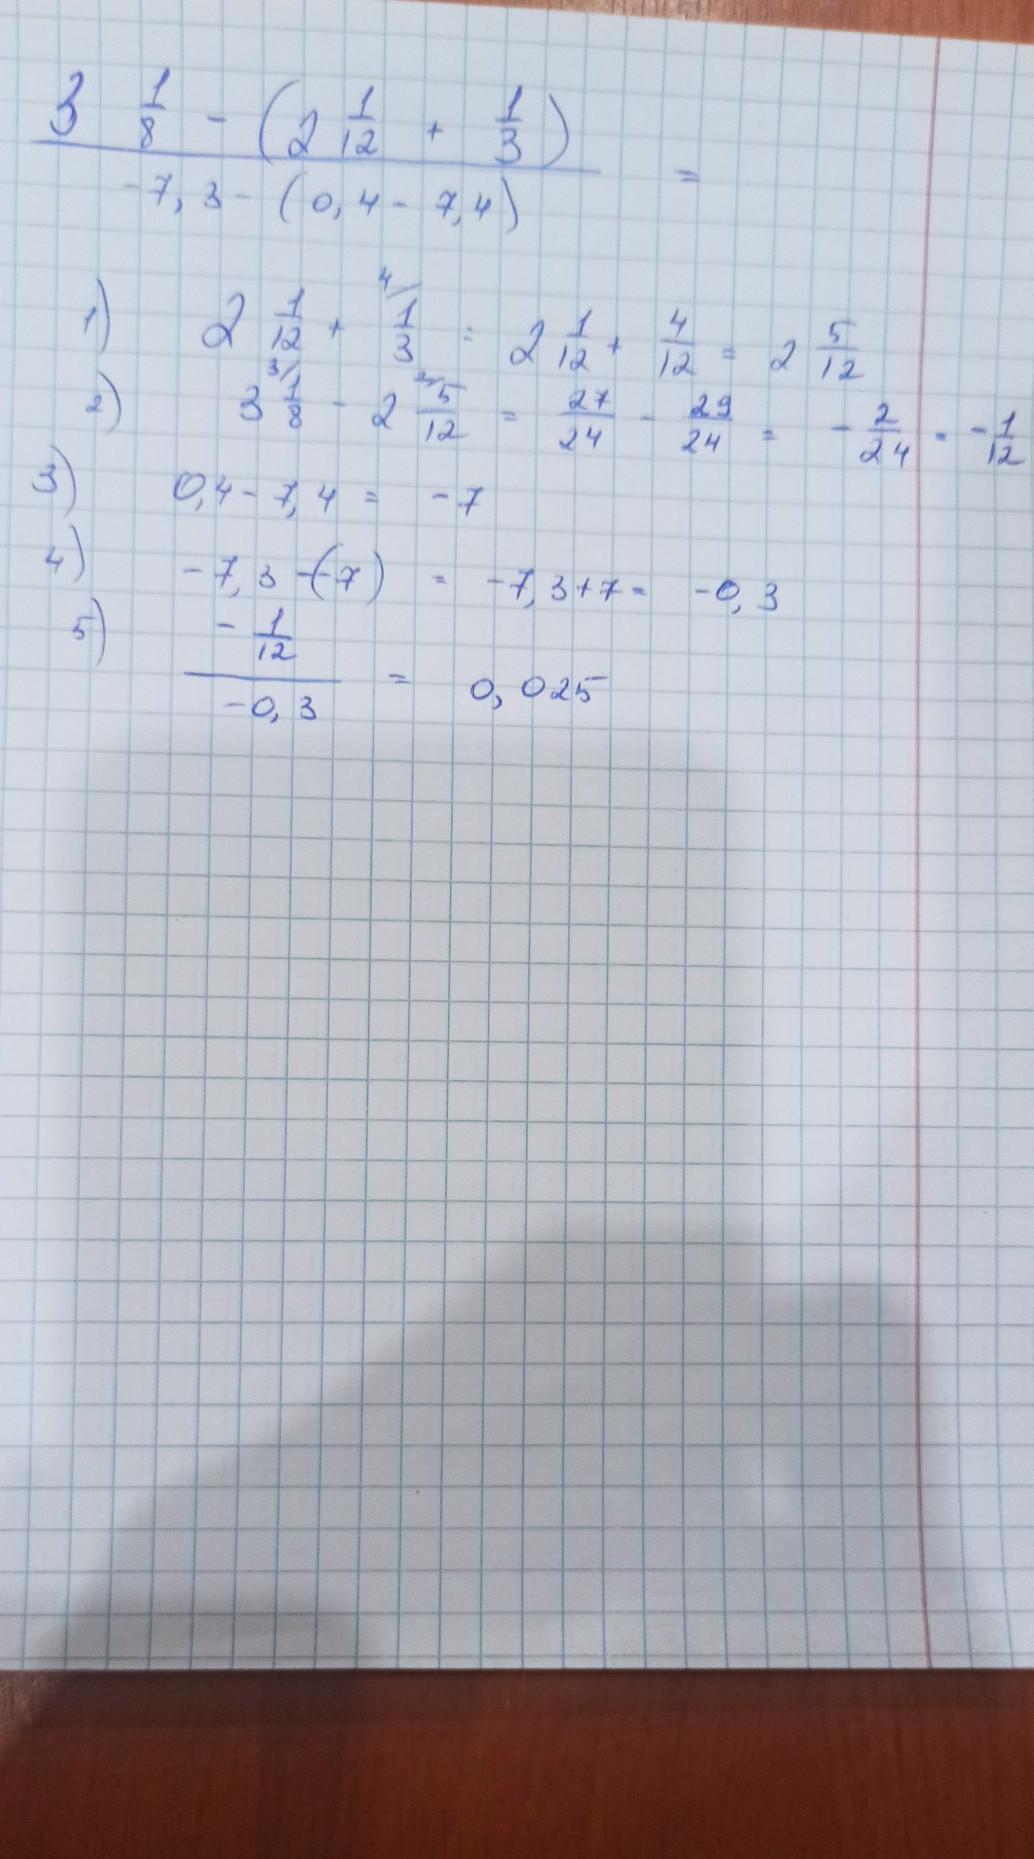 3 1/8 - (2 1/12 + 1/3)
-7,3 - (0,4 - 7,4) =
1) 2 1/12 + 4/ 1/3 = 2 1/12 + 4/12 = 2 5/12
2) 3 3/ 1/8 - 2 2/ 5/12 = 27/24 - 29/24 = - 2/24 = - 1/12
3) 0,4 - 7,4 = -7
4) -7,3 - (-7) = -7,3 + 7 = -0,3
5) - 1/12
-0,3 = 0,025